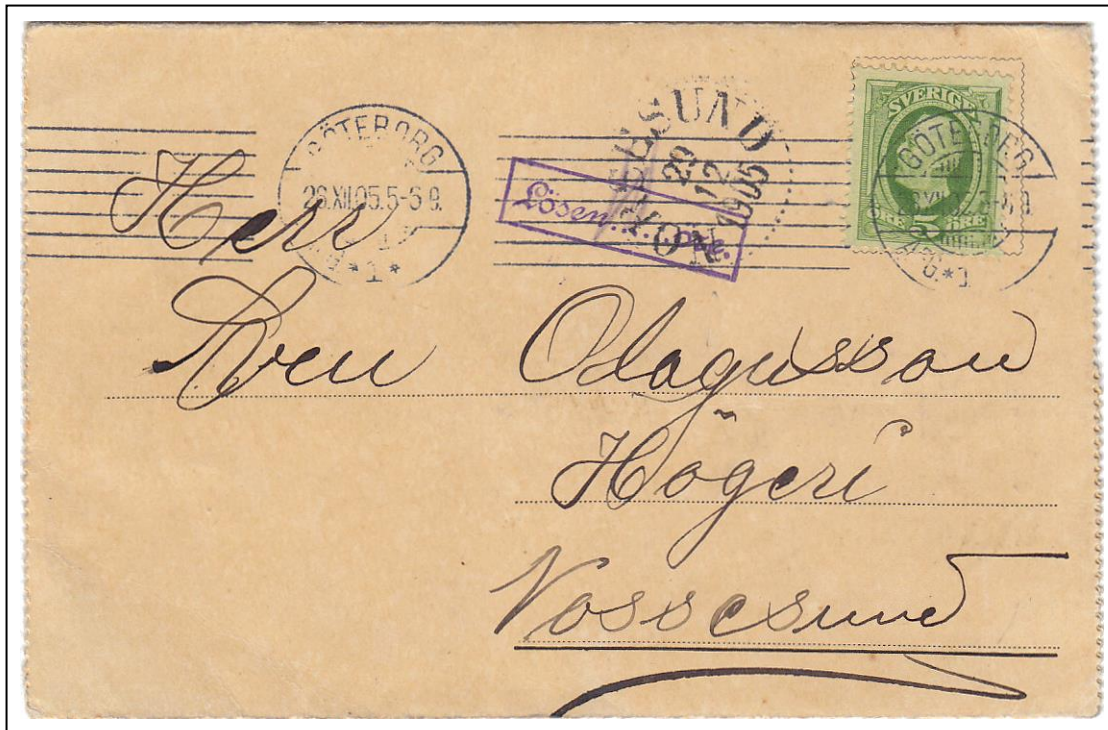 GÖTEBORG
26.XII.05.5-6
*1*
NÖSSESUND
28
12
1905
Lösen....öre.
SVERIGE
5
GÖTEBORG
*1
Herr
Sven Olagusson
Högeri
Nossesund